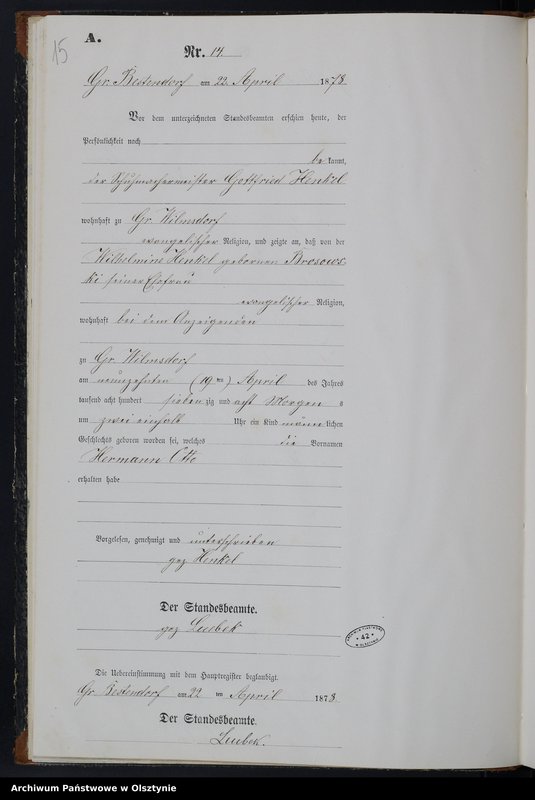 15
A.
Nr. 14.
Gr. Bestendorf am 22. April 1878.
Vor dem unterzeichneten Standesbeamten erschien heute, der
Persönlichkeit nach
be kannt,
der Schuhmachermeister Gottfried Henkel
wohnhaft zu Gr. Wilmsdorf
evangelischer Religion, und zeigte an, daß von der
Wilhelmine Henkel geborenen Brosows
ki seiner Ehefrau
evangelischer Religion,
wohnhaft bei dem Anzeigenden
zu Gr. Wilmsdorf
am neunzehnten (19 ten) April des Jahres
tausend acht hundert sieben zig und acht Morgen s
um zwei einhalb Uhr ein Kind männ lichen
Geschlechts geboren worden sei, welches die Vornamen
Hermann Otto
erhalten habe
Vorgelesen, genehmigt und unterschrieben
gez Henkel
Der Standesbeamte.
gez Luebek
Die Uebereinstimmung mit dem Hauptregister beglaubigt.
Gr. Bestendorf am 22 ten April 1878.
Der Standesbeamte.
Luebek.
42
Archiwum Państwowe w Olsztynie